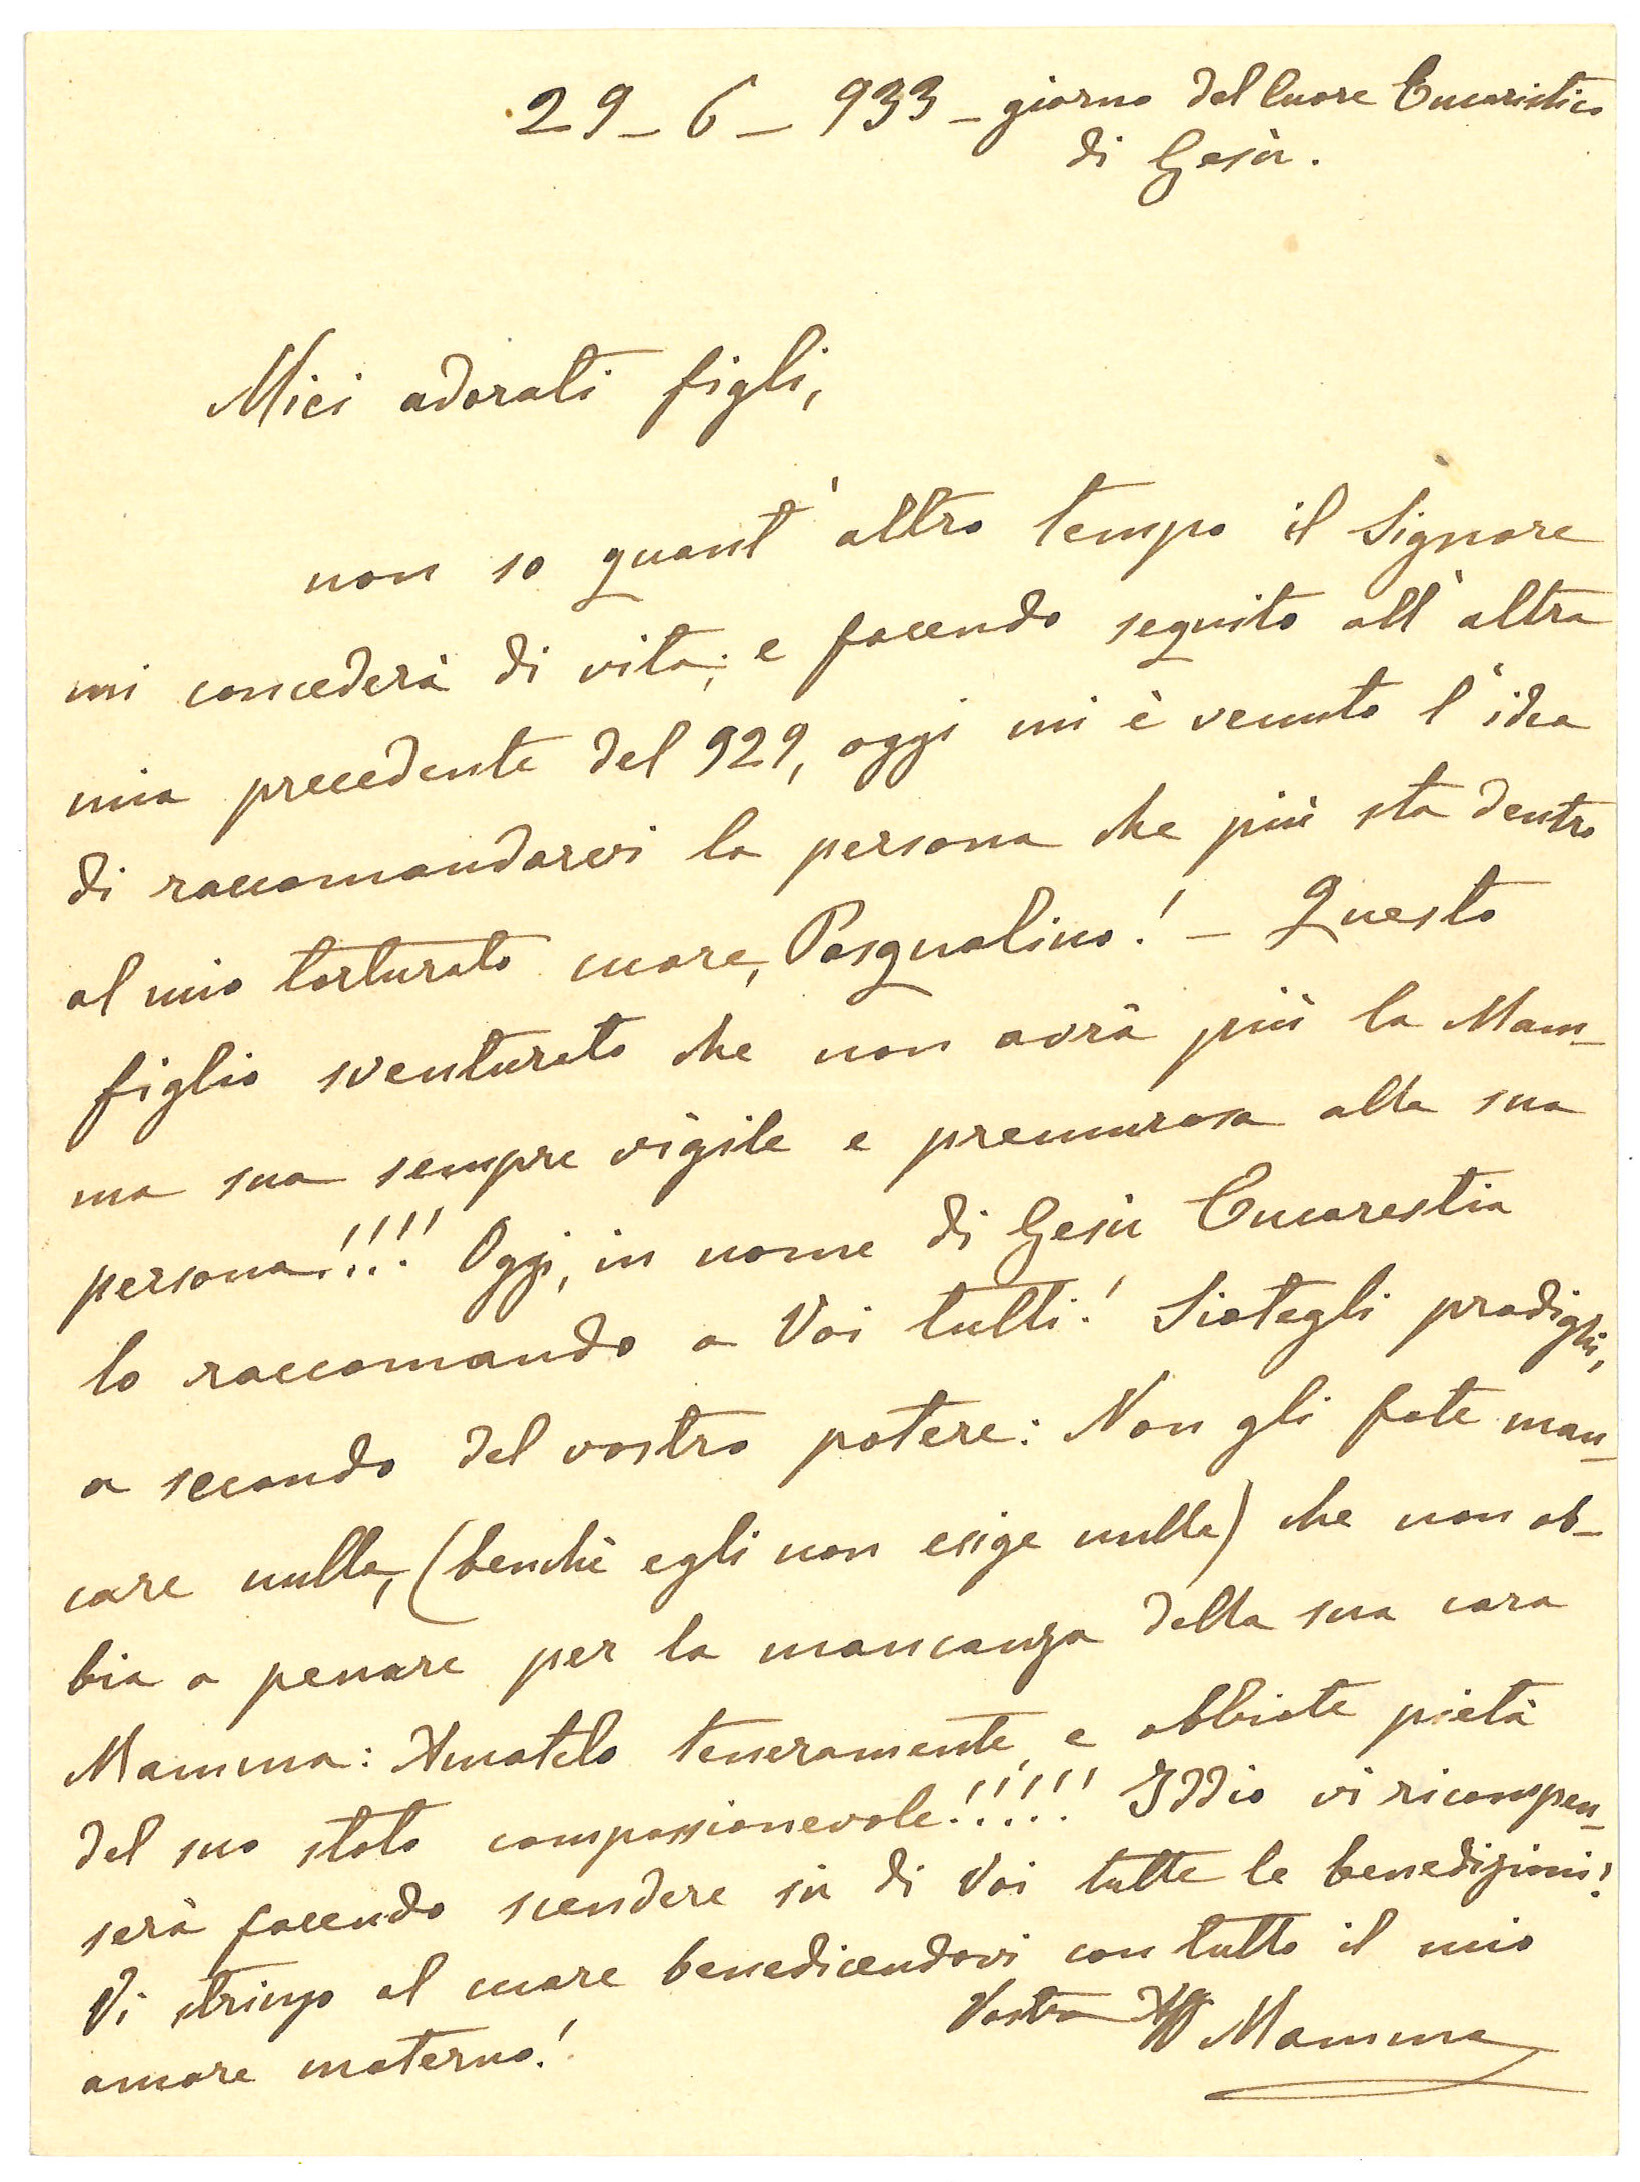 29-6-933- giorno del Cuore Eucaristico
di Gesù.
Miei adorati figli,
non so quant'altro tempo il Signore
mi concederà di vita; e facendo seguito all'altra
mia precedente del 929, oggi mi è venuto l'idea
di raccomandarvi la persona che più sta dentro
al mio torturato cuore, Pasqualino! - Questo
figlio sventurato che non avrà più la Mam-
ma sua sempre vigile e premurosa alla sua
persona!!!! Oggi, in nome di Gesù Eucarestia
lo raccomando a Voi tutti! Siategli prodighi,
a secondo del vostro potere: Non gli fate man-
care nulla, (benchè egli non esige nulla) che non ab-
bia a penare per la mancanza della sua cara
Mamma: Amatelo teneramente, e abbiate pietà
del suo stato compassionevole!!!!! Iddio vi ricompen-
serà facendo scendere sù di Voi tutte le benedizioni!
Vi stringo al cuore benedicendovi con tutto il mio
amore materno!
Vostra Aff Mamma